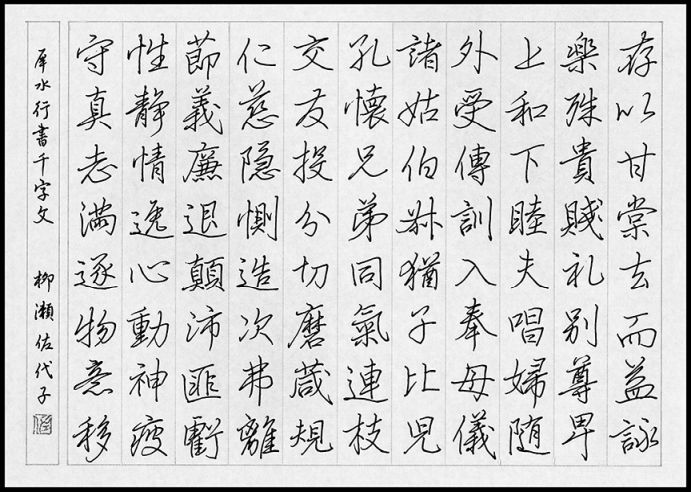 存以甘棠去而益詠
樂殊貴賤礼別尊卑
上和下睦夫唱婦随
外受傳訓入奉母儀
諸姑伯叔猶子比児
孔懐兄弟同氣連枝
交友投分切磨箴規
仁慈隠惻造次弗離
節義廉退顛沛匪虧
性静情逸心動神疲
守真志満逐物意移
犀水行書千字文 柳瀬佐代子